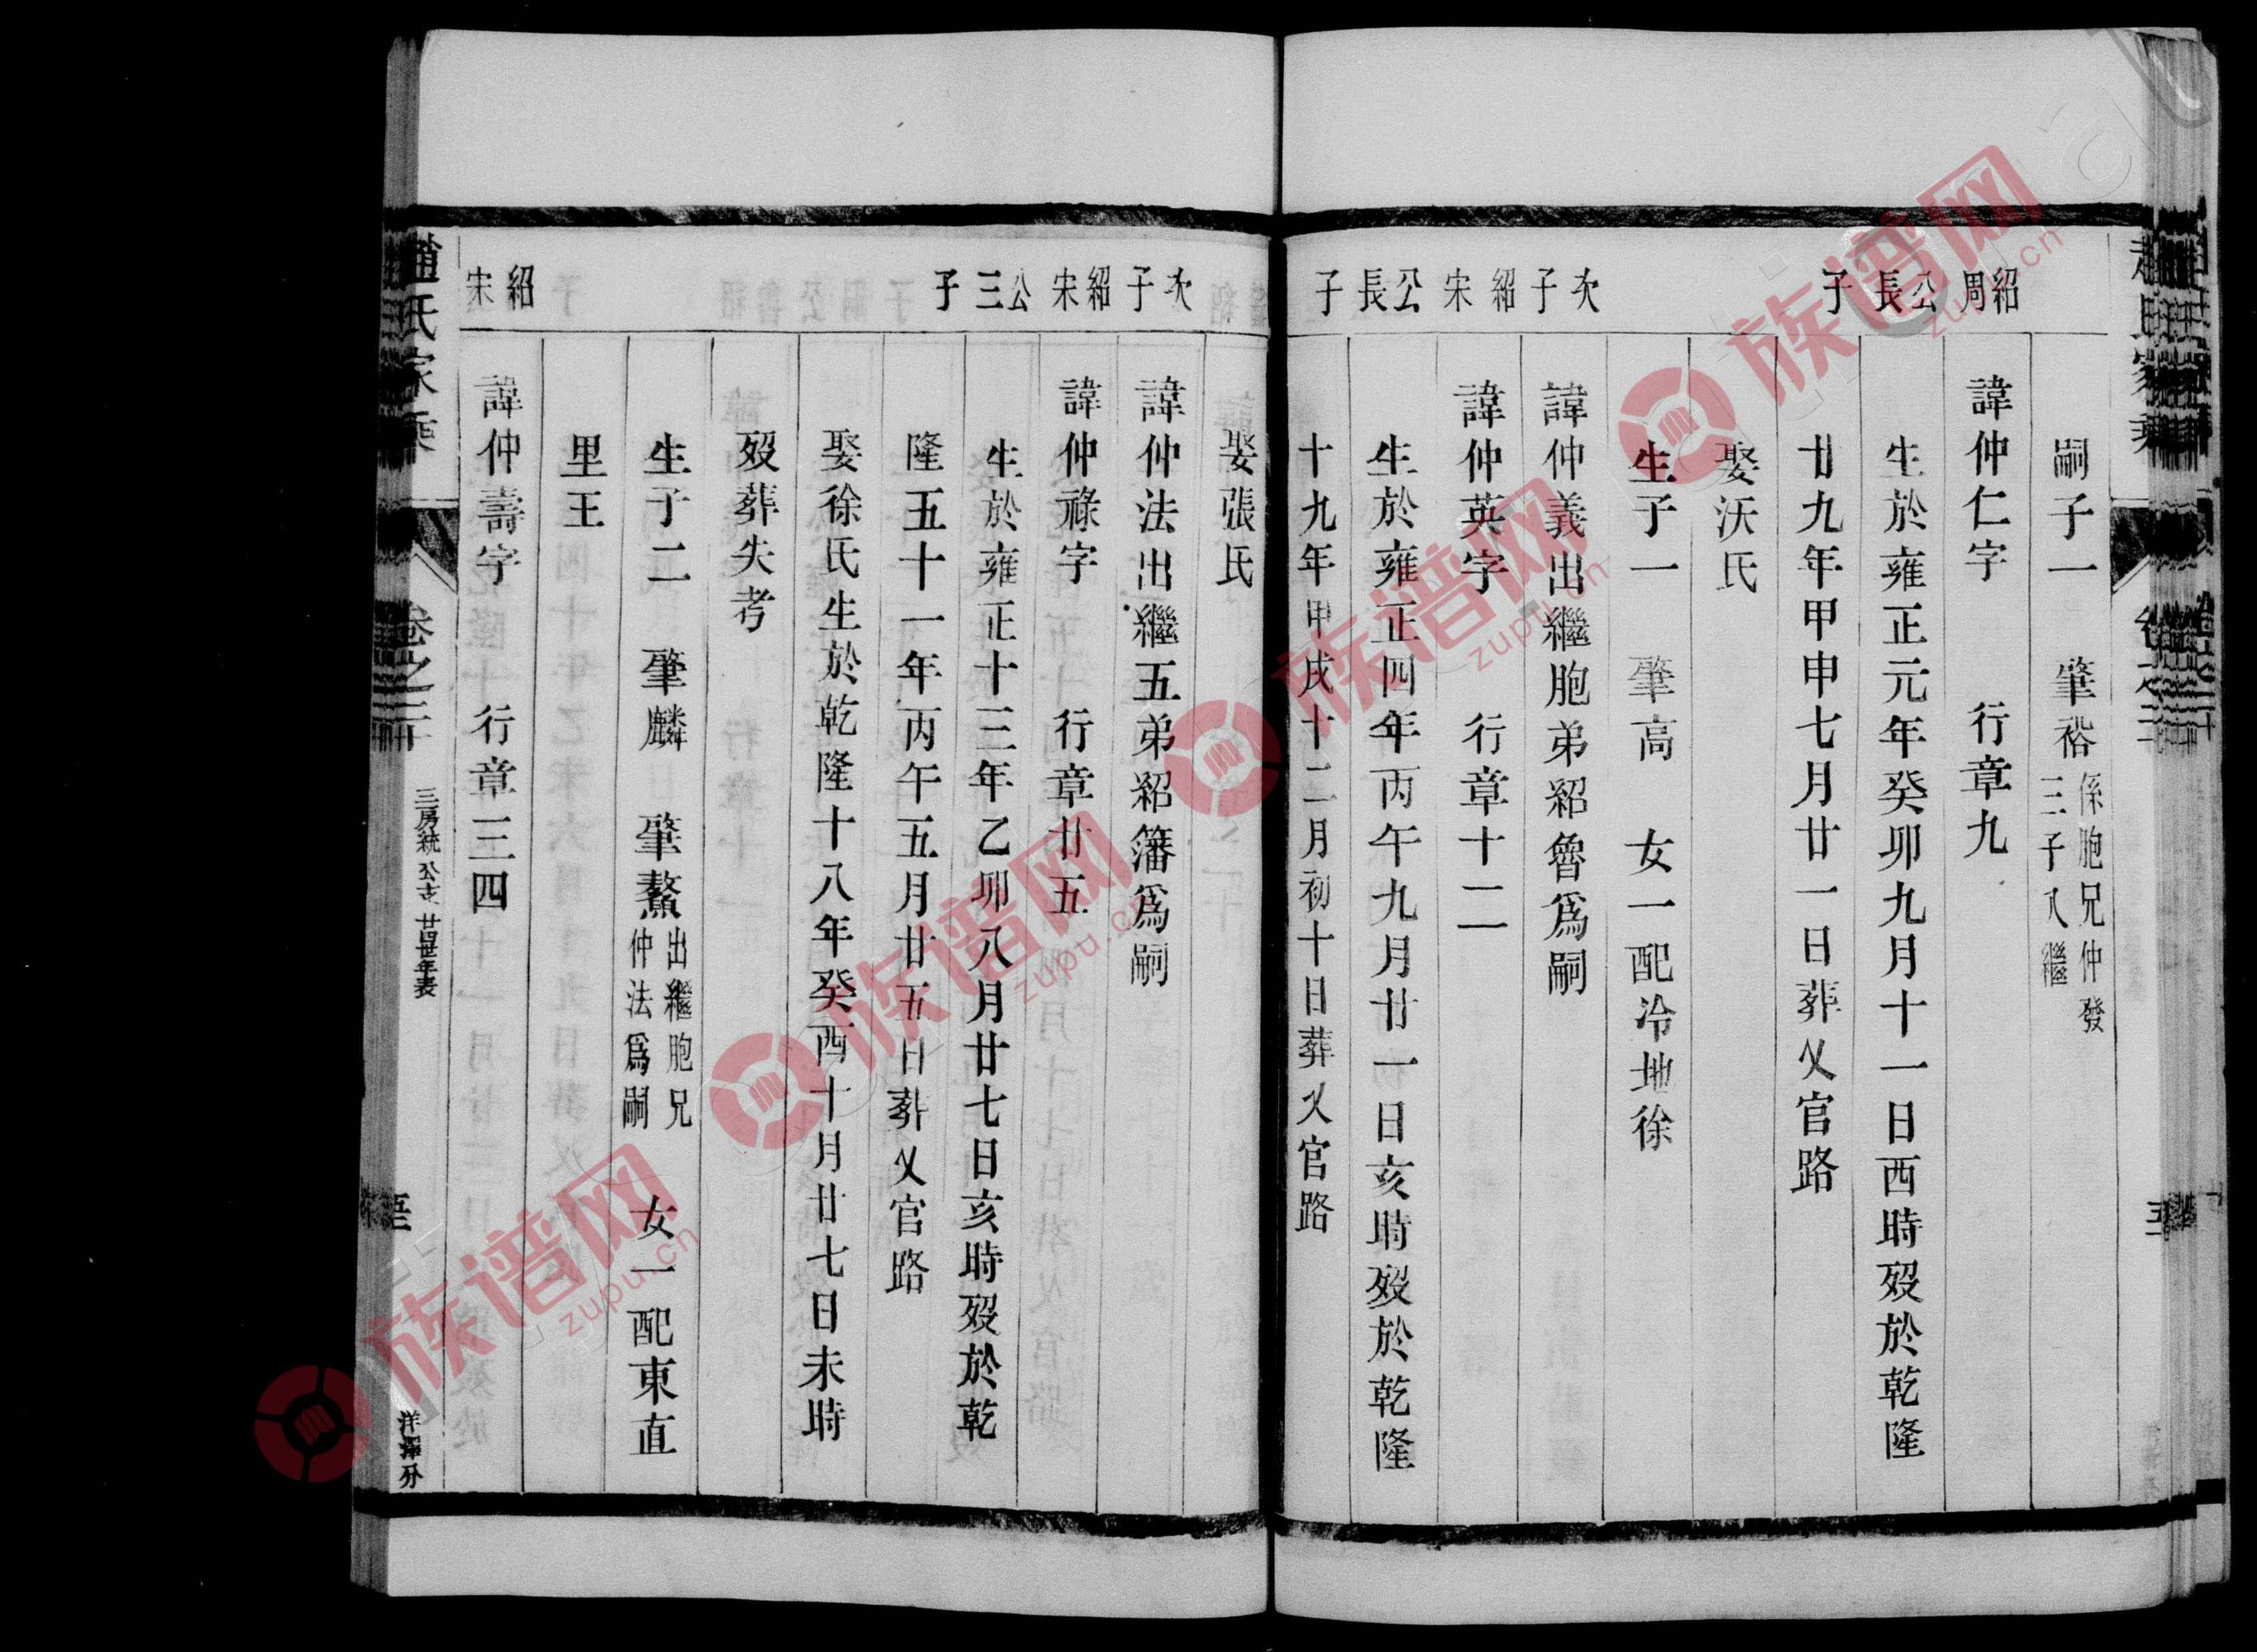 嗣子一 肇裕係胞兄仲發三子入繼
紹周公長子
諱仲仁字 行章九
生於雍正元年癸卯九月十一日酉時歿於乾隆
廿九年甲申七月廿一日葬乂官路
娶沃氏
生子一 肇高 女一配冷地徐
次子
諱仲義出繼胞弟紹魯爲嗣
紹宋公長子
諱仲英字 行章十二
生於雍正四年丙午九月廿一日亥時歿於乾隆
十九年甲戌十二月初十日葬乂官路
娶張氏
次子
諱仲法出繼五弟紹籓爲嗣
紹宋公三子
諱仲祿字 行章廿五
生於雍正十三年乙卯八月廿七日亥時歿於乾
隆五十一年丙午五月廿五日葬乂官路
娶徐氏生於乾隆十八年癸酉十月廿七日未時
歿葬失考
生子二 肇麟 肇鰲出繼胞兄仲法爲嗣 女一配東直
里王
紹宋
諱仲壽字 行章三四
趙氏家乘 卷之二十 三房統公支廿四世年表
族谱网
zupu.cn